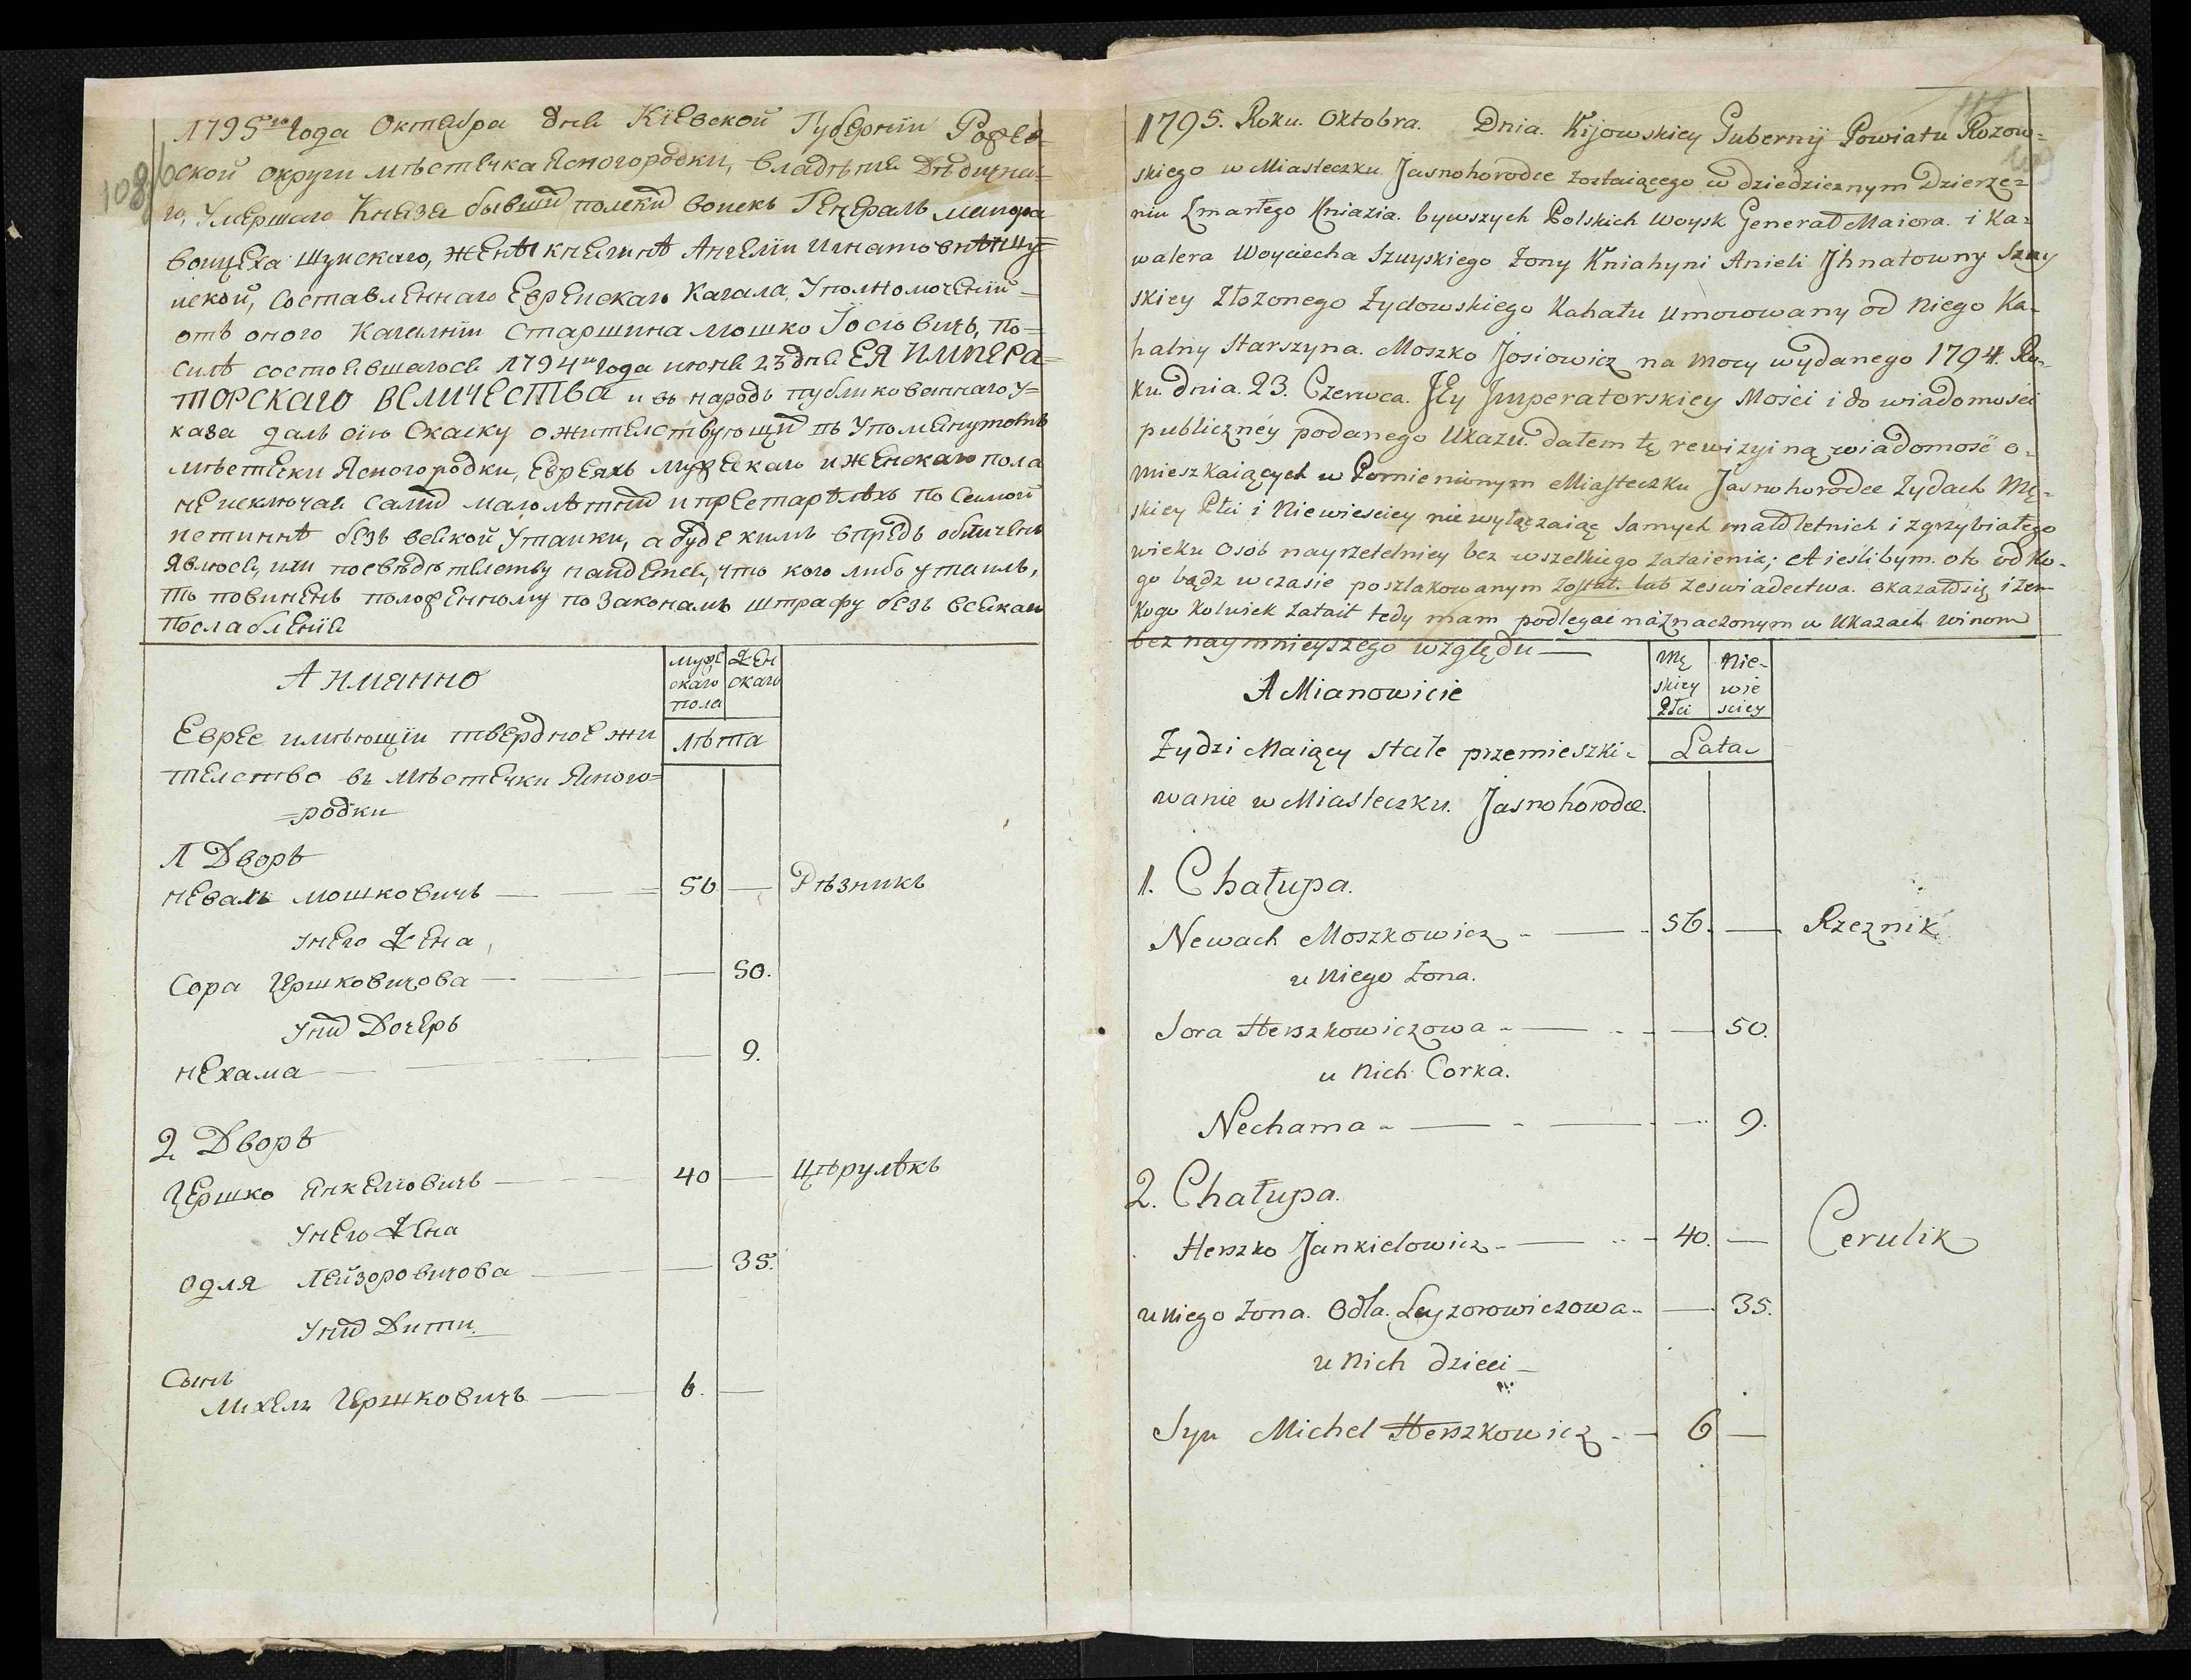 1795го Года Октября дня Кіевской Губерніи Рожев-
ской округи мѣстечка Ясногородки, владѣнія Дѣдична-
го, Умершаго Князя бывшихъ полскихъ воискъ Генералъ маиора
воицеха Шуискаго, женѣ княгинѣ Ангеліи Игнатовнѣ Шу=
иской, Составленнаго Еврейскаго Кагала, Уполномоченій=
отъ оного Кагалніи Старшина Мошко Іосіовичъ, По=
силѣ состоявшагося 1794го года июня 23 дня ЕЯ ИМПЕРА=
ТОРСКАГО ВЕЛИЧЕСТВА и въ народъ публикованнаго У=
каза далъ сію Скаску о жителствующихъ въ Упомянутомъ
мѣстечки Ясногородки, Евреяхъ мужескаго и женскаго пола
не исключая самихъ малолѣтнихъ и престарѣлѣхъ по Самой
истиннѣ безъ всякой Утайки, а буде кимъ впредъ обличенъ
явлюся, или по свѣдѣтелству найдется, что кого либо утаилъ,
то повиненъ положенному по Законамъ штрафу безъ всякаи
Послабленія
А имянно
муже
скаго
пола
жен
скаго
Еврее имѣющіи твердное жи
лѣта
телство въ мѣстечки Ясного=
=родки
1 Дворъ
Невахъ мошковичъ — 56 — Рѣзникъ
Унего жена
Сора Гершковичова — — 50.
Унихъ Дочеръ
Нехама — — 9.
2 Дворъ
Гершко Янкеліовичъ — 40 — Цѣрулѣкъ
Унего жена
Одля Лейзоровичова — — 35.
Унихъ Дити
Сынъ
Михель Гершковичъ — 6. —
1795. Roku. Oktobra. Dnia. Kijowskiey Gubernÿ Powiatu Rozow=
skiego w Miasteczku Jasnohorodce zostaiącego w dziedzicznym Dzierze=
niu Zmarłego Kniazia. bywszych Polskich Woysk Generał Maiora. i Ka=
walera Woyciecha Szuyskiego Zony Kniahyni Anieli Jhnatowny Szuy
skiey Złozonego Zydowskiego Kahału umocowany od niego Ka-
halny Starszyna. Moszko Josiowicz na mocy wydanego 1794. Ro-
ku dnia. 23. Czerwca. Jey Jmperatorskiey Mości i do wiadomości
publiczney podanego Ukazu. dałem tę rewizyiną wiadomość o-
mieszkaiących w Pomienionym Miasteczku Jasnohorodce Zydach Mę-
skiey Płci i Niewiesciey niewyłączaiąc samych małoletnich i zgrzybiałego
wieku Osób nayrzetelniey bez wszelkiego zataienia; A ieślibym. oto od Ko-
go bądz wczasie poszlakowanym został. lub zeświadectwa. okazałosię iżem
Kogo kolwiek zataił tedy mam podlegać naznaczonym w Ukazach winom
bez naymnieyszego względu —
A Mianowicie
Mę
skiey
Płci
Nie-
wie
sciey
Zydzi Maiący stałe przemieszki-
Lata
wanie w Miasteczku. Jasnohorodce.
1. Chałupa.
Newach Moszkowicz — 56. — Rzeznik
u niego Zona.
Sora Herszkowiczowa — — 50.
u nich Corka.
Nechama — — 9.
2. Chałupa.
Herszko Jankielowicz — 40. — Cerulik
u niego Zona. Odla. Leyzorowiczowa — — 35.
u nich dzieci —
Syn Michel Herszkowicz — 6 —